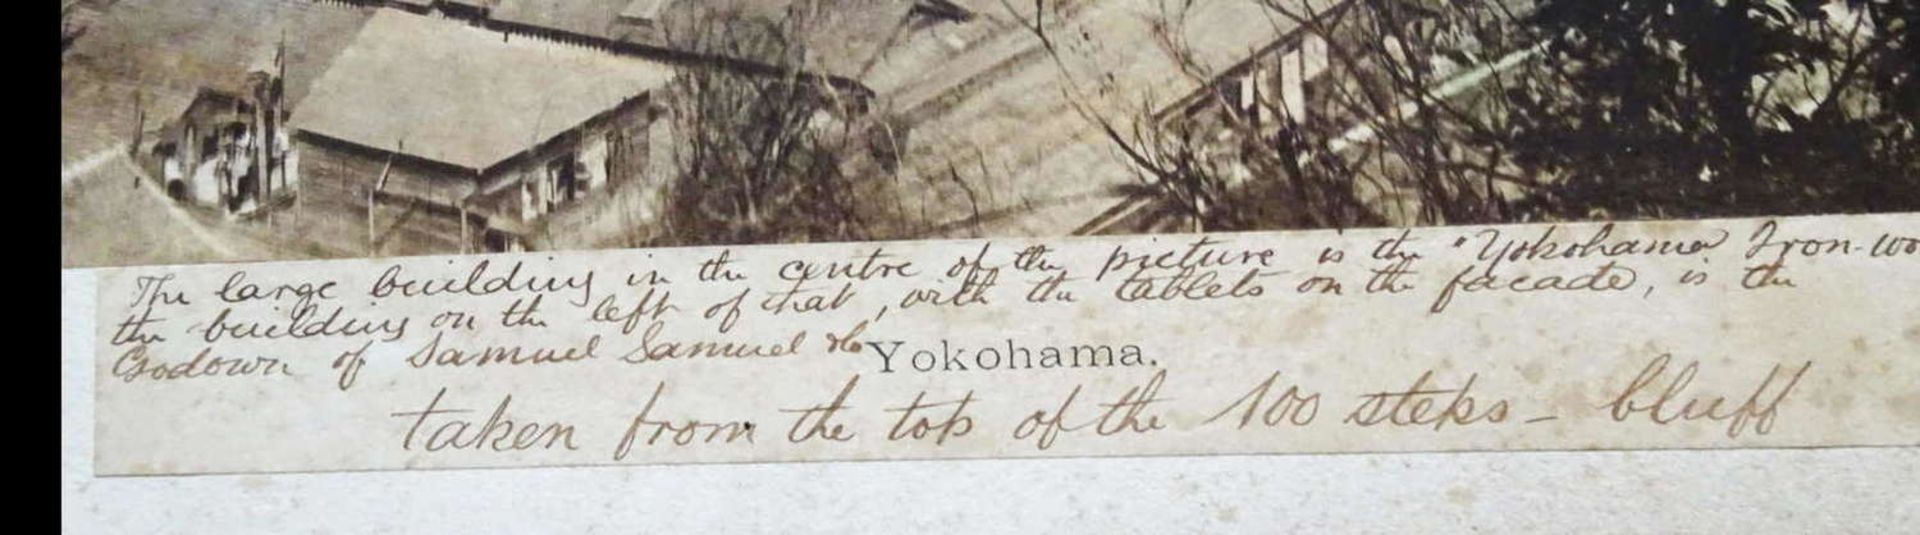 The large building in the centre of the picture is the "Yokohama Iron-wo
the building on the left of that, with the tablets on the facade, is the
Godown of Samuel Samuel &Co
Yokohama.
taken from the top of the 100 steps - bluff